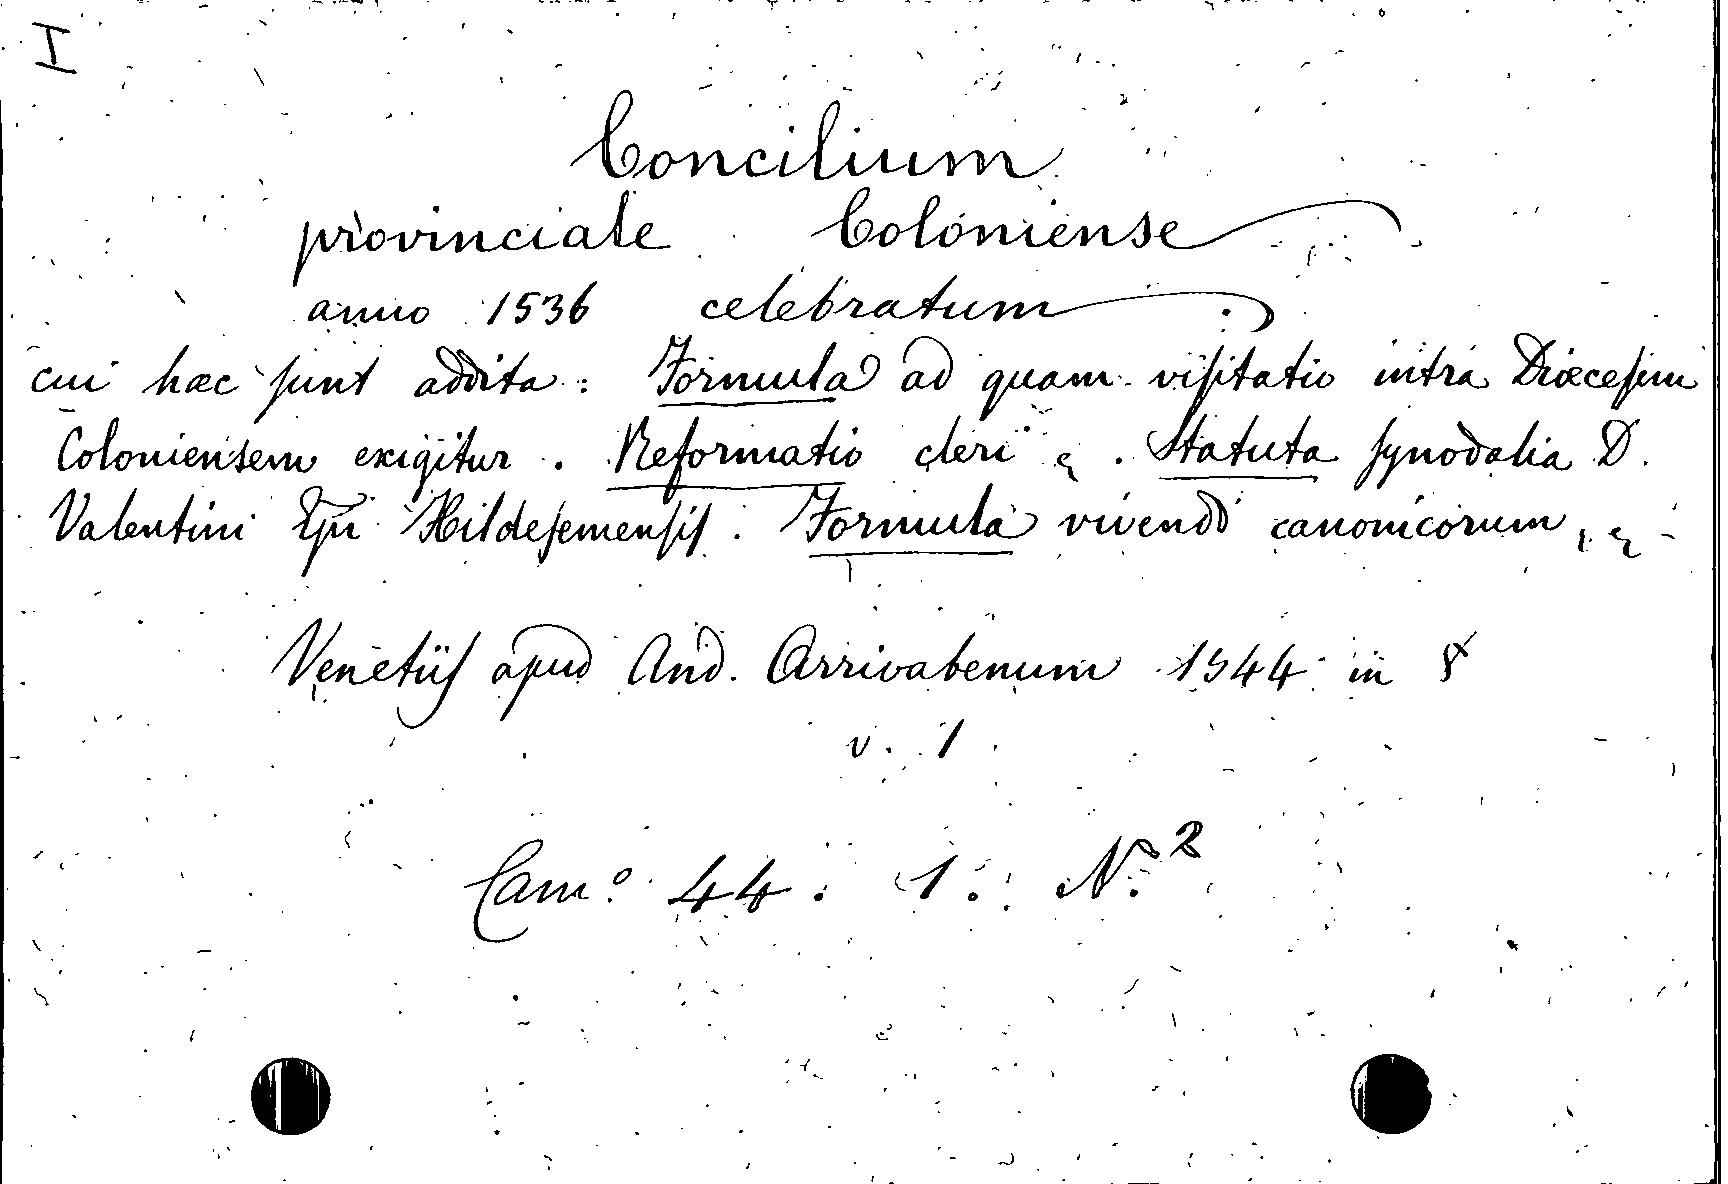 I
Concilium
provinciale Coloniense
anno 1536 celebratum
cui hæc sunt addita: Formula ad quam visitatio intra Diœcesim
Coloniensem exigitur. Reformatio cleri &. Statuta synodalia D.
Valentini Epi Hildesemensis. Formula vivendi canonicorum, &
Venetiis apud And. Arrivabenum 1544 in 8
v. 1
Camº 44. 1. Nº 2